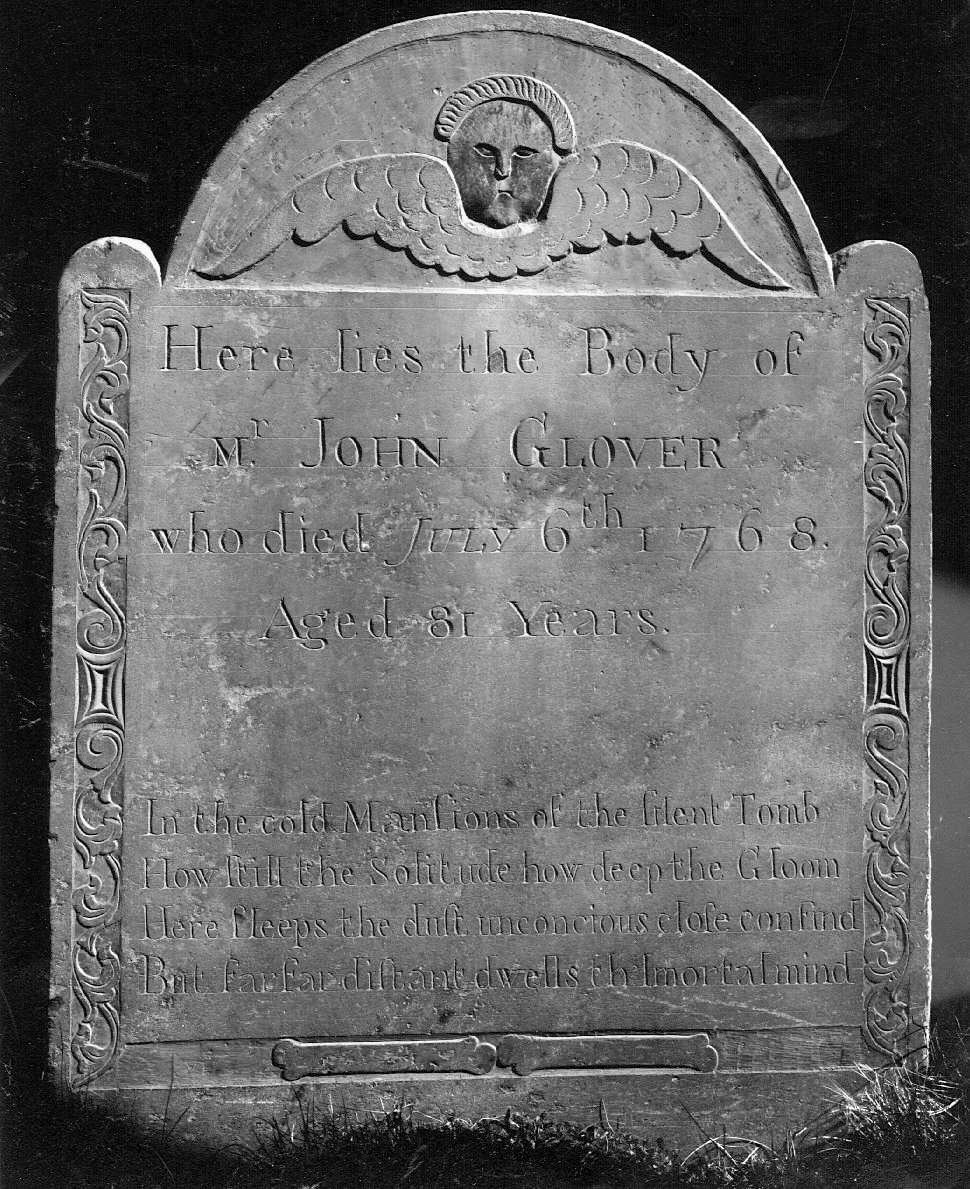 Here lies the Body of
Mʳ. JOHN GLOVER
who died JULY 6ᵗʰ 1768.
Aged 81 Years.
In the cold Manſions of the ſilent Tomb
How ſtill the Solitude how deep the Gloom
Here ſleeps the duſt unconcious cloſe confind
But far far diſtant dwells th'Imortal mind